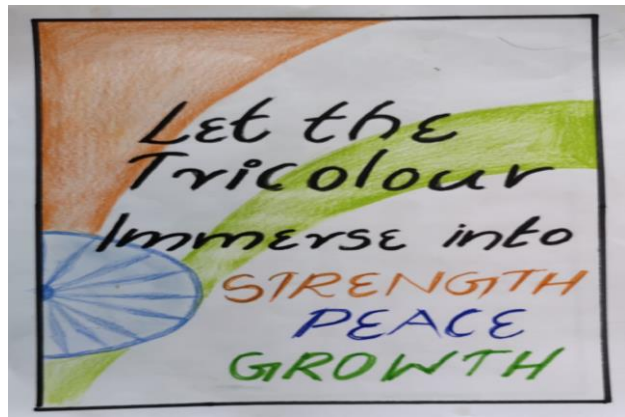 Let the
Tricolour
Immerse into
STRENGTH
PEACE
GROWTH